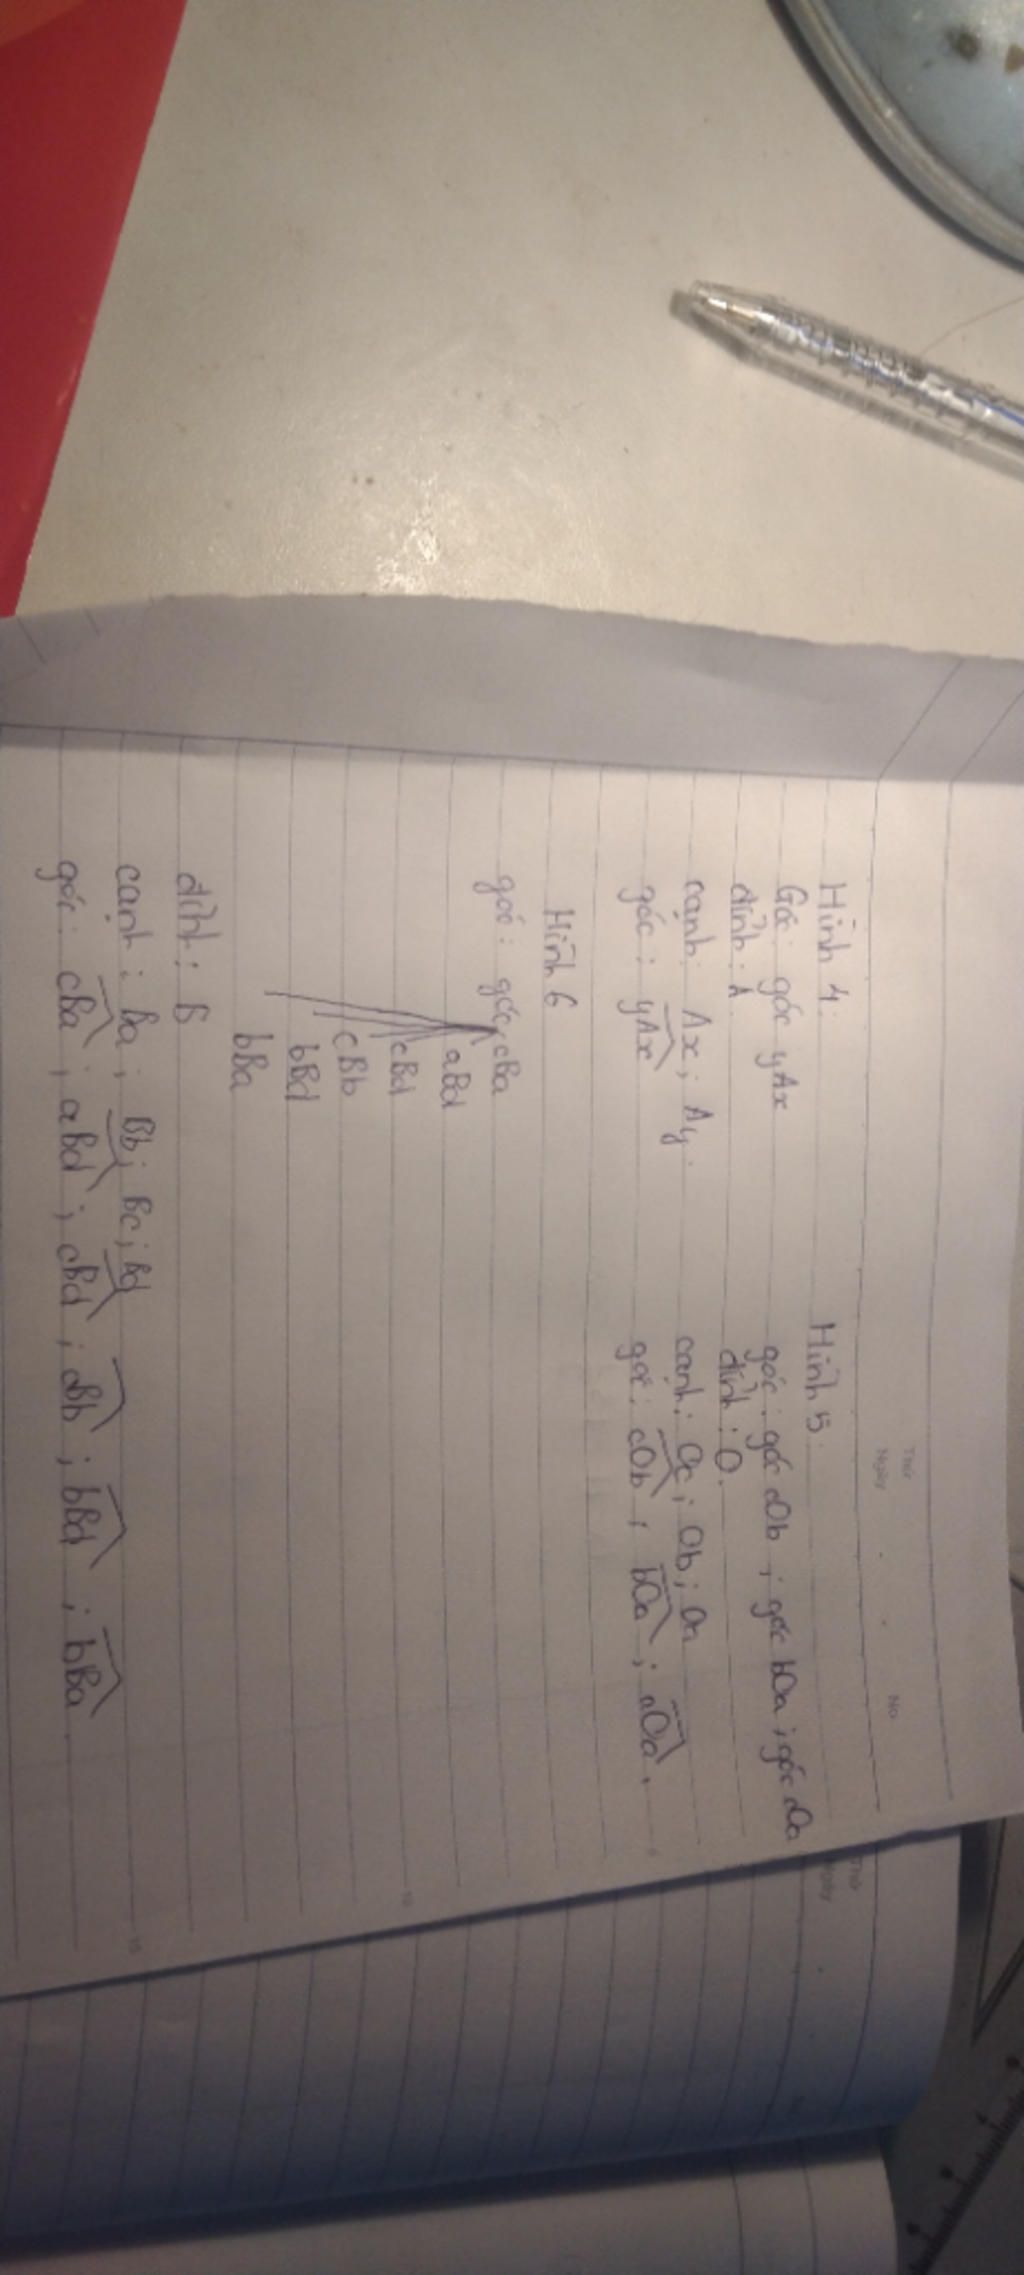 Thứ
Ngày
No
Hình 4:
Góc: góc yAx
đỉnh: A
cạnh: Ax; Ay.
góc: yAx
Hình 5
góc: góc cOb; góc bOa; góc cOa
đỉnh: O.
cạnh: Oc; Ob; Oa
góc: cOb; bOa; cOa.
Hình 6
góc: góc cBa
aBd
cBd
cBb
bBd
bBa
đỉnh: B
cạnh: Ba; Bb; Bc; Bd
góc: cBa; aBd; cBd; cBb; bBd; bBa.
10
15
Thứ
Ngày